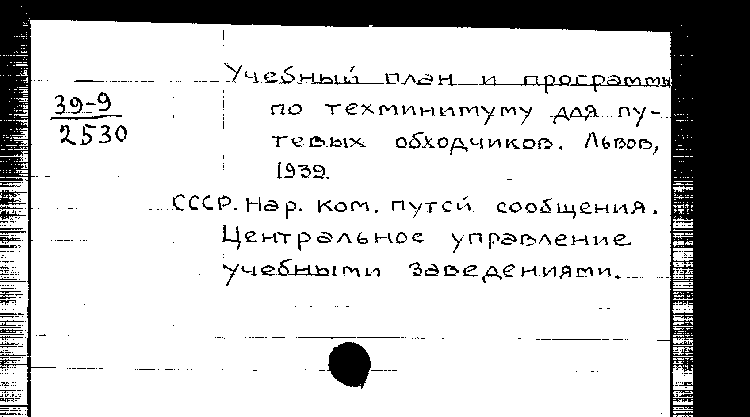 Учебный план и программы
39-9
по техминимуму для пу-
2530
тевых обходчиков. Львов,
1939.
СССР. Нар. ком. путей сообщения.
Центральное управление
учебными заведениями.